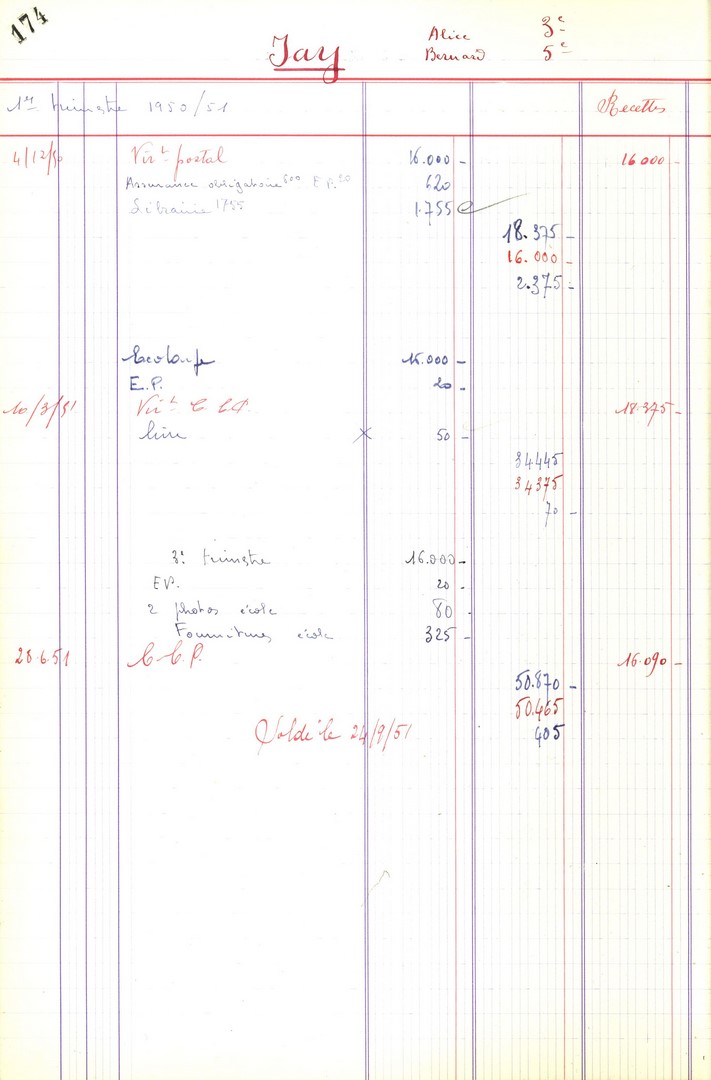 174
Jay
Alice 3e
Bernard 5e
1er trimestre 1950/51 Recettes
4/12/50 Virt postal 16.000 - 16 000 -
Assurance obligatoire 600 E.P. 20 620
Librairie 1755 1.755
18.375 -
16.000
2.375 -
16.000 -
E.P. 20 -
10/3/51 Virt C.C.P. 18.375 -
livre × 50 -
34445
34375
70 -
3e trimestre 16.000 -
EP. 20 -
2 photos école 80
Fournitures école 325 -
28.6.51 C.C.P. 16.090 -
50.870 -
50.465
405
Soldé le 24/9/51